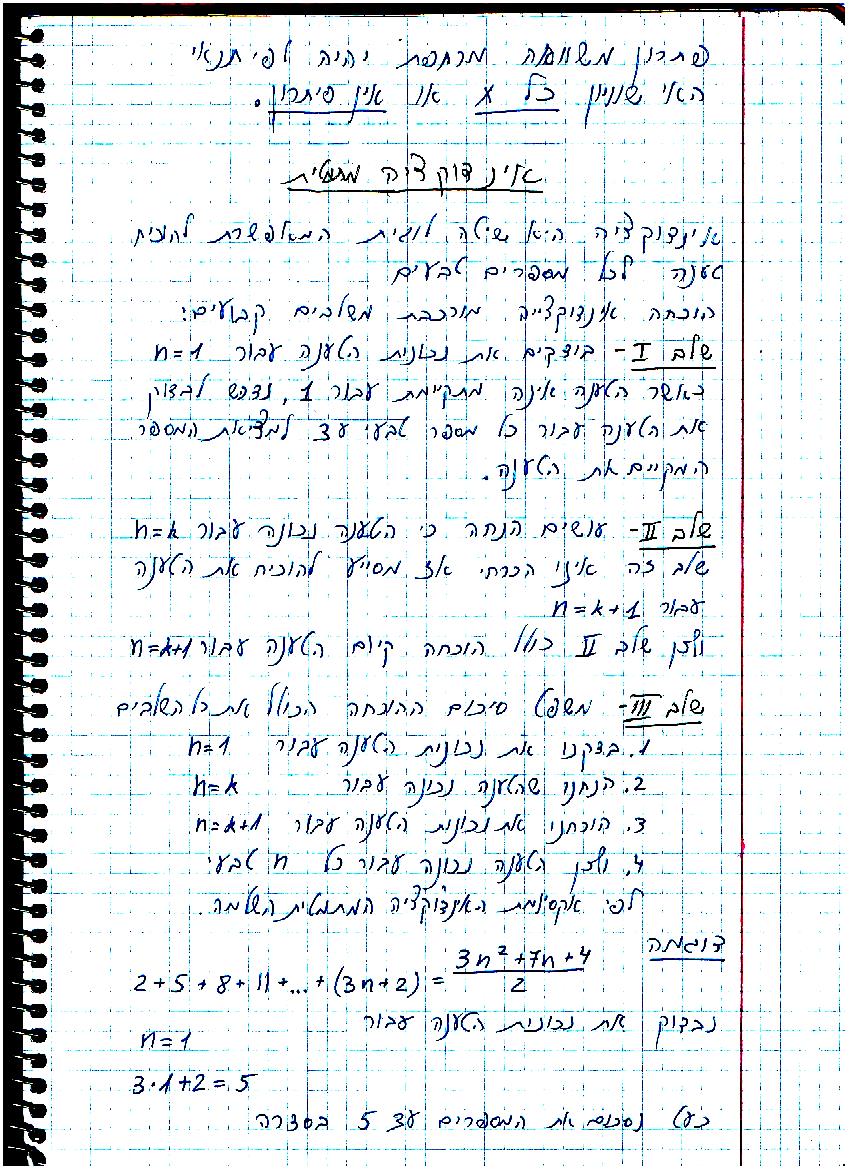 פתרון משוואה מרחפת יהיה לפי תנאי
האי שוויון כל x או אין פיתרון.
אינדוקציה מתמטית
אינדוקציה היא שיטה לוגית המאפשרת להוכיח
טענה לכל מספרים טבעים
הוכחה אינדוקצייה מורכבת משלבים קבועים:
שלב I - בודקים את נכונות הטענה עבור n=1
כאשר הטענה אינה מתקיימת עבור 1, נדרש לבדוק
את הטענה עבור כל מספר טבעי עד למציאת המספר
המקיים את הטענה.
שלב II - עושים הנחה כי הטענה נכונה עבור n=k
שלב זה אינו הכרחי אז מסייע להוכיח את הטענה
עבור n=k+1
ולכן שלב II כולל הוכחה קיום הטענה עבור n=k+1
שלב III - משפט סיכום ההוכחה הכולל את כל השלבים
1. בדקנו את נכונות הטענה עבור n=1
2. הנחנו שהטענה נכונה עבור n=k
3. הוכחנו את נכונות הטענה עבור n=k+1
4. ולכן הטענה נכונה עבור כל n טבעי
לפי אקסיומת האינדוקציה המתמטית השלמה.
דוגמה
2+5+8+11+...+(3n+2) = \frac{3n²+7n+4}{2}
נבדוק את נכונות הטענה עבור
n=1
3·1+2=5
כעת נסכום את המספרים עד 5 בסדרה